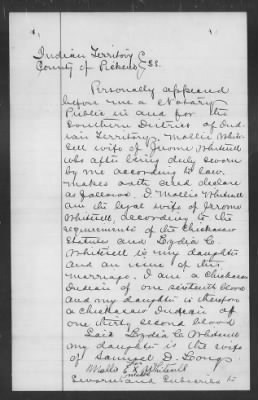 Indian Territory
County of Pickens } SS.
Personally appeared
before me a Notary
Public in and for the
Southern District of Ind-
ian Territory, Mollie Whit-
sell wife of Jerome Whitsell
who after being duly sworn
by me according to law.
makes oath and declare
as follows. I Mollie Whitsell
am the legal wife of Jerome
Whitsell, according to the
requirements of the Chickasaw
Statutes and Lydia C.
Whitsell is my daughter
and an issue of this
marriage. I am a Chickasaw
Indian of one sixteenth blood
and my daughter is therefore
a Chickasaw Indian of
one thirty second blood
Said Lydia C. Whitsell
my daughter is the wife
of Samuel D.
Mollie E. X Whitsell
mark
Sworn and Subscribed to